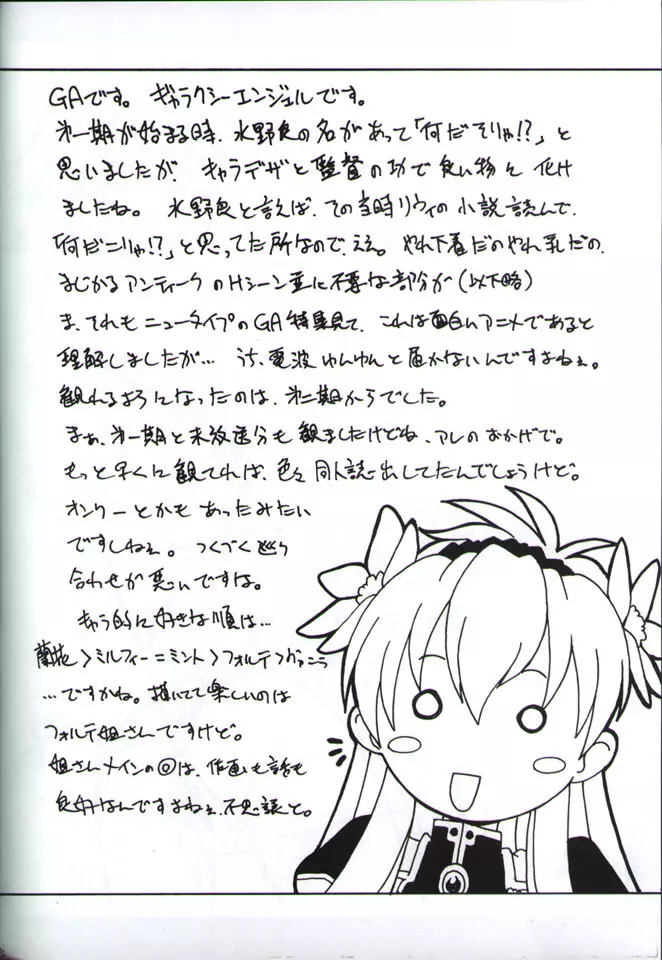 GAです。 ギャラクシーエンジェルです。
第一期が始まる時、水野良の名があって「何だそりゃ!?」と
思いましたが、キャラデザと監督の功で良い物に化け
ましたね。 水野良と言えば、その当時リウイの小説読んで、
「何だこりゃ!?」と思ってた所なので、ええ。 やれ下着だのやれ乳だの、
まじかるアンティークのHシーン並に不要な部分が(以下略)
ま、それもニュータイプのGA特集見て、これは面白いアニメであると
理解しましたが… うち、電波ゆんゆんと届かないんですよねぇ。
観れるようになったのは、第二期からでした。
まぁ、第一期と未放送分も観ましたけどね、アレのおかげで。
もっと早くに観てれば、色々同人誌出してたんでしょうけど。
オンリーとかもあったみたい
ですしねぇ。 つくづく巡り
合わせが悪いですは。
キャラ的に好きな順は…
蘭花>ミルフィー=ミント>フォルテ>ヴァニラ
…ですかね。描いてて楽しいのは
フォルテ姐さんですけど。
姐さんメインの回は、作画も話も
良好なんですよねぇ、不思議と。